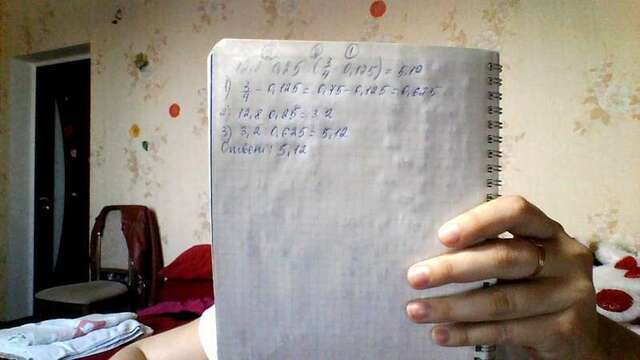 12,8 · 0,25 · (3/4 - 0,125) = 5,12
1) 3/4 - 0,125 = 0,75 - 0,125 = 0,625
2) 12,8 · 0,25 = 3,2
3) 3,2 · 0,625 = 5,12
Ответ: 5,12